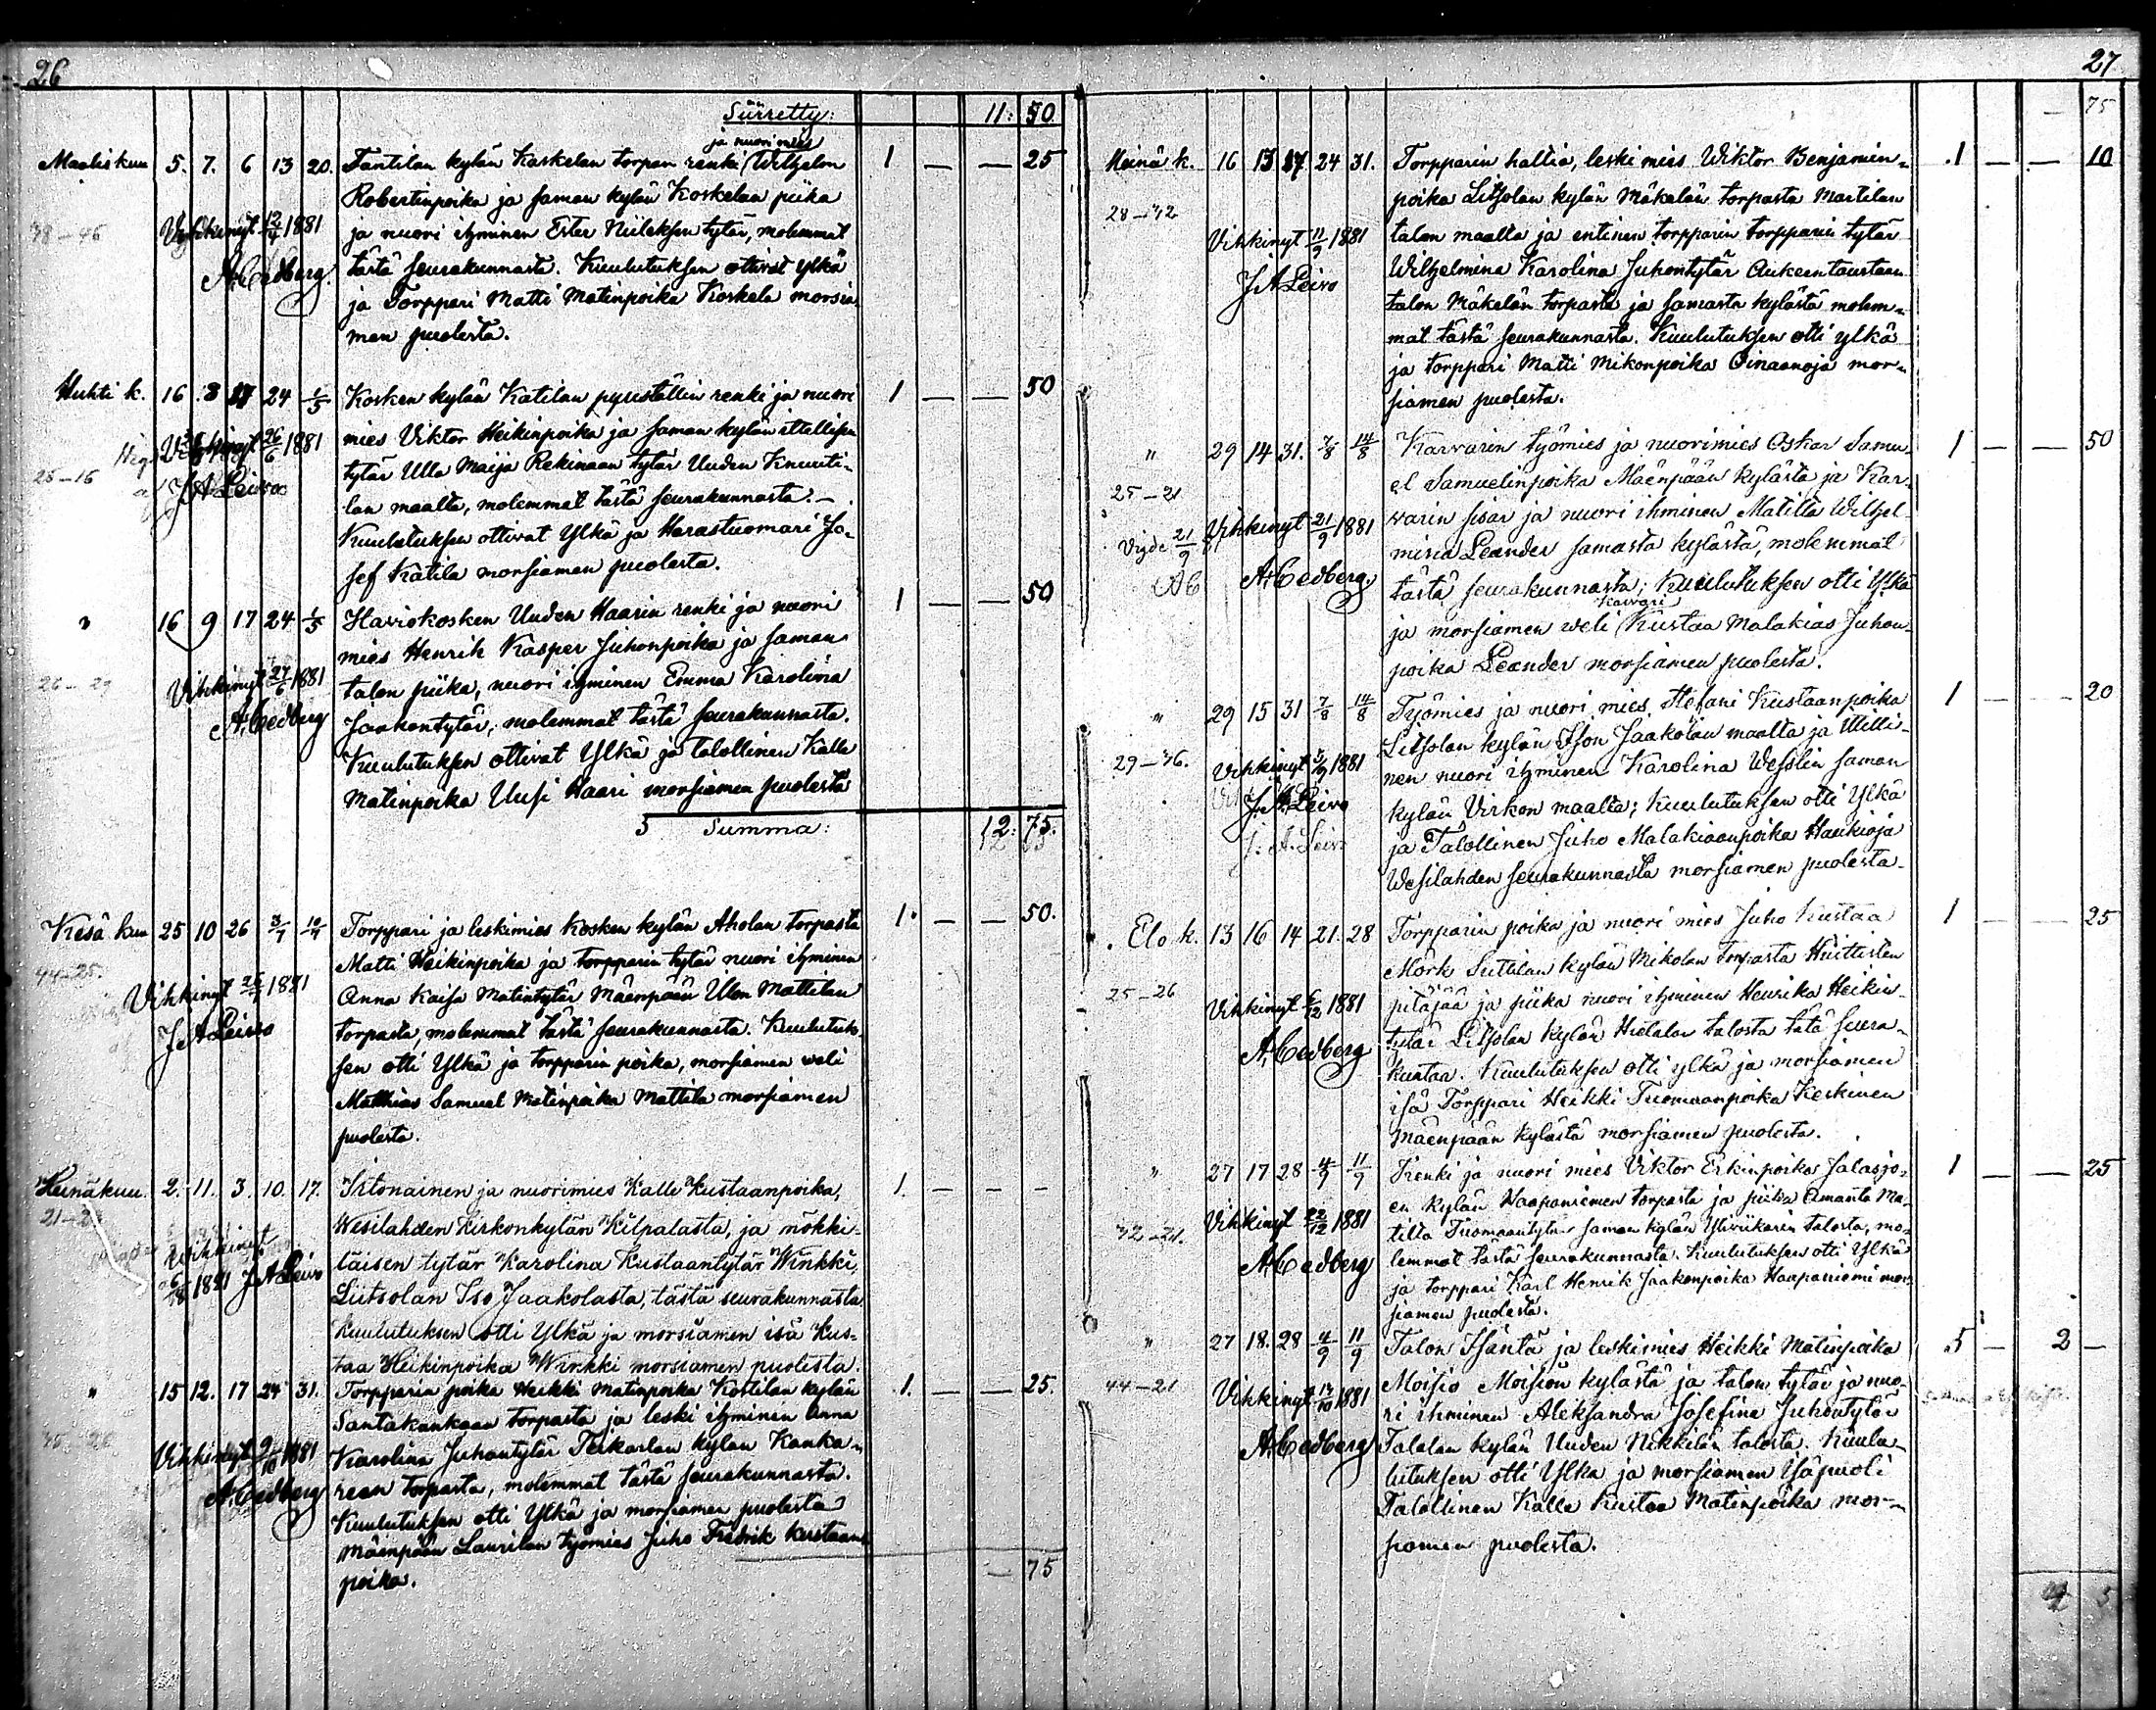 26
Siirretty: 11: 50
ja nuori mies
Maaliskuu 5. 7. 6 13 20. Tantilan kylän Koskelan torpan renki Wilhelm 1 — — 25
Robertinpoika ja saman kylän Koskelan piika
38–46 Vihkinyt 12/4 1881 ja nuori ihminen Ester Niileksen tytär, molemmat
A. Cedberg. tästä seurakunnasta. Kuulutuksen ottivat ylkä
ja Torppari Matti Matinpoika Koskela morsia-
men puolesta.
Huhti k. 16 8 17 24 1/5 Kosken kylän Katilan pyuställin renki ja nuori 1 — — 50
Vihkinyt 26/6 1881 mies Viktor Heikinpoika ja saman kylän ittellisen
25–16 J. A Leivo tytär Ulla Maija Rekinaan tytär Uuden Knuuti-
lan maalta, molemmat tästä seurakunnasta. –
Kuulutuksen ottivat Ylkä ja Herastuomari Jo-
sef Katila morsiamen puolesta.
" 16 9 17 24 1/5 Haviokosken Uuden Haarin renki ja nuori 1 — — 50
mies Henrik Kasper Juhonpoika ja saman
26–29 Vihkinyt 27/6 1881 talon piika, nuori ihminen Emma Karolina
A. Cedberg Jaakontytär, molemmat tästä seurakunnasta.
Kuulutuksen ottivat Ylkä ja talollinen Kalle
Matinpoika Uusi Haari morsiamen puolesta
3 Summa: 12: 75.
Kesä kuu 25 10 26 3/7 10/7 Torppari ja leskimies Kosken kylän Aholan torpasta 1. — — 50.
44–25. Matti Heikinpoika ja torpparin tytär nuori ihminen
Vihkinyt 1881 Anna Kaisa Matintytär Mäenpään Ulon Mattilan
J A Leivo torpasta, molemmat tästä seurakunnasta. Kuulutuk-
sen otti Ylkä ja torpparin poika, morsiamen weli
Matthias Samuel Matinpoika Mattila morsiamen
puolesta.
Heinäkuu. 2. 11. 3. 10. 17. Irtonainen ja nuorimies Kalle Kustaanpoika, 1. — — —
21–23 Wesilahden Kirkonkylän Kilpalasta, ja mökki-
Vihkinyt läisen tytär Karolina Kustaantytär Winkki,
1881 J A Leivo Liitsolan Iso Jaakolasta, tästä seurakunnasta
Kuulutuksen otti Ylkä ja morsiamen isä Kus-
taa Heikinpoika Winkki morsiamen puolesta.
" 15 12. 17 24 31. Torpparin poika Heikki Matinpoika Kostilan kylän 1. — — 25.
Santakankaan torpasta ja leski ihminen Anna
Vihkinyt 9/10 1881 Karolina Juhontytär Teikarlan kylän Kanka-
A. Cedberg reen torpasta, molemmat tästä seurakunnasta.
Kuulutuksen otti Ylkä ja morsiamen puolesta
Mäenpään Laurilan työmies Juho Fredrik Kustaan
poika. — 75
27
— 75
Heinä k. 16 13 17 24 31. Torpparin haltia, leski mies Wiktor Benjamin- 1 — — 10
28–42 poika Litsolan kylän Mäkelän torpasta Martilan
Vihkinyt 11/9 1881 talon maalta ja entinen torpparin torpparin tytär
J. A Leivo Wilhelmina Karolina Juhontytär Aukeentaustaan
talon Mäkelän torpasta ja samasta kylästä molem-
mat tästä seurakunnasta. Kuulutuksen otti ylkä
ja torppari Matti Mikonpoika Oinaanoja mor-
siamen puolesta.
" 29 14 31. 7/8 14/8 Karvarin työmies ja nuorimies Oskar Samu- 1 — — 50
25–21 el Samuelinpoika Mäenpään kylästä ja Kar-
Vigde 21/9 Vihkinyt 21/9 1881 varin sisar ja nuori ihminen Matilta Wilhel-
AC A. Cedberg. mina Leander samasta kylästä, molemmat
tästä seurakunnasta; Kuulutuksen otti Ylkä
karvari
ja morsiamen weli Kustaa Malakias Juhon-
poika Leander morsiamen puolesta.
" 29 15 31 7/8 14/8 Työmies ja nuori mies Stefani Kustaanpoika 1 — — 20
Litsolan kylän Ison Jaakolan maalta ja Willi-
29–36. Vihkinyt 1881 nen nuori ihminen Karolina Wesslin saman
J. A. Leivo kylän Virkon maalta; Kuulutuksen otti Ylkä
ja Talollinen Juho Malakiaanpoika Haukioja
Wesilahden seurakunnasta morsiamen puolesta.
Elo k. 13 16 14 21. 28 Torpparin poika ja nuori mies Juho Kustaa 1 — — 25
Mörk Suttilan kylän Mikolan torpasta Huittisten
25–26 Vihkinyt 1881 pitäjää ja piika nuori ihminen Henrika Heikin-
A. Cedberg tytär Litsolan kylän Hietalan talosta tätä seura-
kuntaa. Kuulutuksen otti ylkä ja morsiamen
isä Torppari Heikki Tuomaanpoika Keskinen
Mäenpään kylästä morsiamen puolesta.
" 27 17 28 4/9 11/9 Renki ja nuori mies Viktor Erkinpoika Jalasjo- 1 — — 25
en kylän Haapaniemen torpasta ja piika Amanta Ma-
Vihkinyt 22/12 1881 tilta Tuomaantytär saman kylän Yliviikarin talosta, mo-
A. Cedberg lemmat tästä seurakunnasta. Kuulutuksen otti Ylkä
ja torppari Karl Henrik Jaakonpoika Haapaniemi mor-
siamen puolesta.
" 27 18. 28 4/9 11/9 Talon Isäntä ja leskimies Heikki Matinpoika 5 — 2 —
44–21 Moisio Moision kylästä ja talon tytär ja nuo-
Vihkinyt 1881 ri ihminen Aleksandra Josefina Juhontytär
A. Cedberg Talalan kylän Uuden Nikkilän talosta. Kuulu-
lutuksen otti Ylkä ja morsiamen Isäpuoli
Talollinen Kalle Kustaa Matinpoika mor-
siamen puolesta.